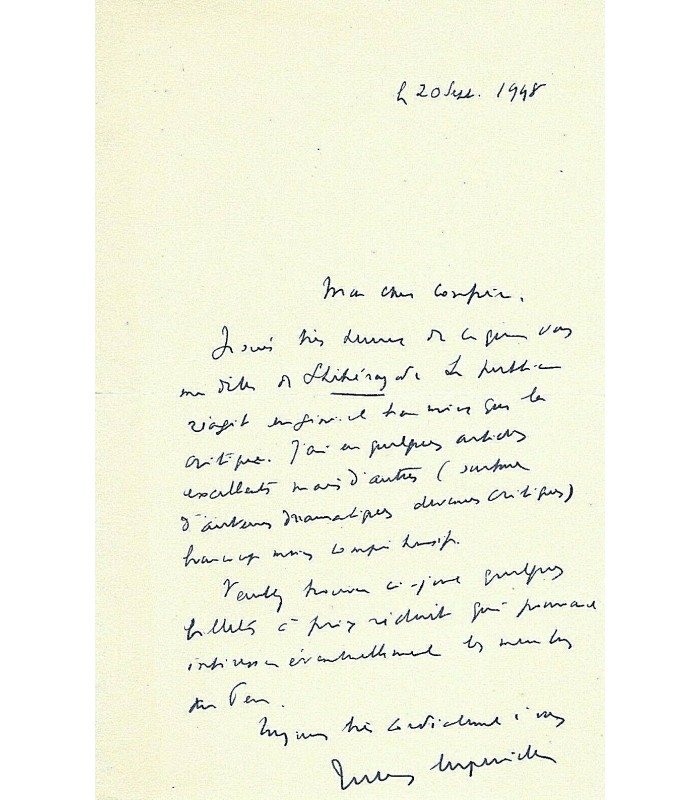 le 20 Sept. 1948
Mon cher Confrère,
Je suis très heureux de ce que vous
me dites de Shéhérazade. Le public
réagit en général bien mieux que la
critique. J'ai eu quelques articles
excellents mais d'autres (surtout
d'auteurs dramatiques devenus critiques)
beaucoup moins compréhensifs.
Veuillez trouver ci-joint quelques
billets à prix réduit qui pourraient
intéresser éventuellement les membres
du Pen.
très cordialement à vous
Jules Supervielle